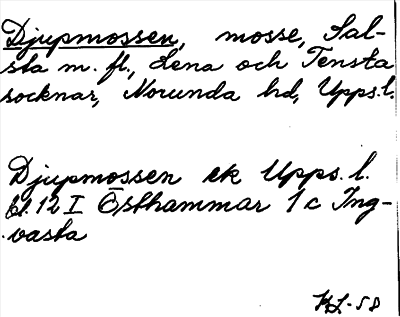 Djupmossen, mosse, Sal-
sta m. fl., Lena och Tensta
socknar, Norunda hd, Upps.l.
Djupmossen ek Upps. l.
bl. 12 I Östhammar 1 c Ing-
vasta
HL-58